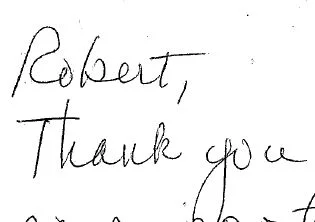 Robert,
Thank you